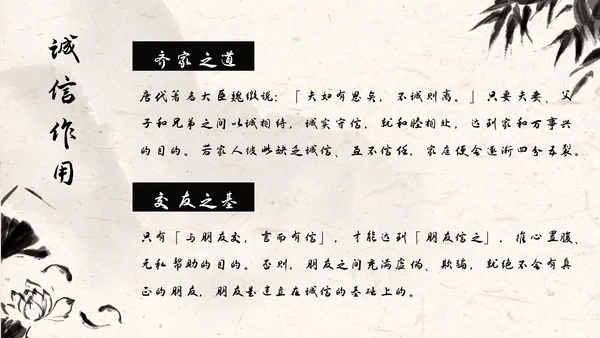 诚信作用
齐家之道
唐代著名大臣魏徵说：「夫如有思矣，不诚则离。」只要夫妻、父
子和兄弟之间以诚相待，诚实守信，就和睦相处，达到家和万事兴
的目的。若家人彼此缺乏诚信、互不信任，家庭便会逐渐四分五裂。
交友之基
只有「与朋友交，言而有信」，才能达到「朋友信之」，推心置腹、
无私帮助的目的。否则，朋友之间充满虚伪、欺骗，就绝不会有真
正的朋友，朋友是建立在诚信的基础上的。